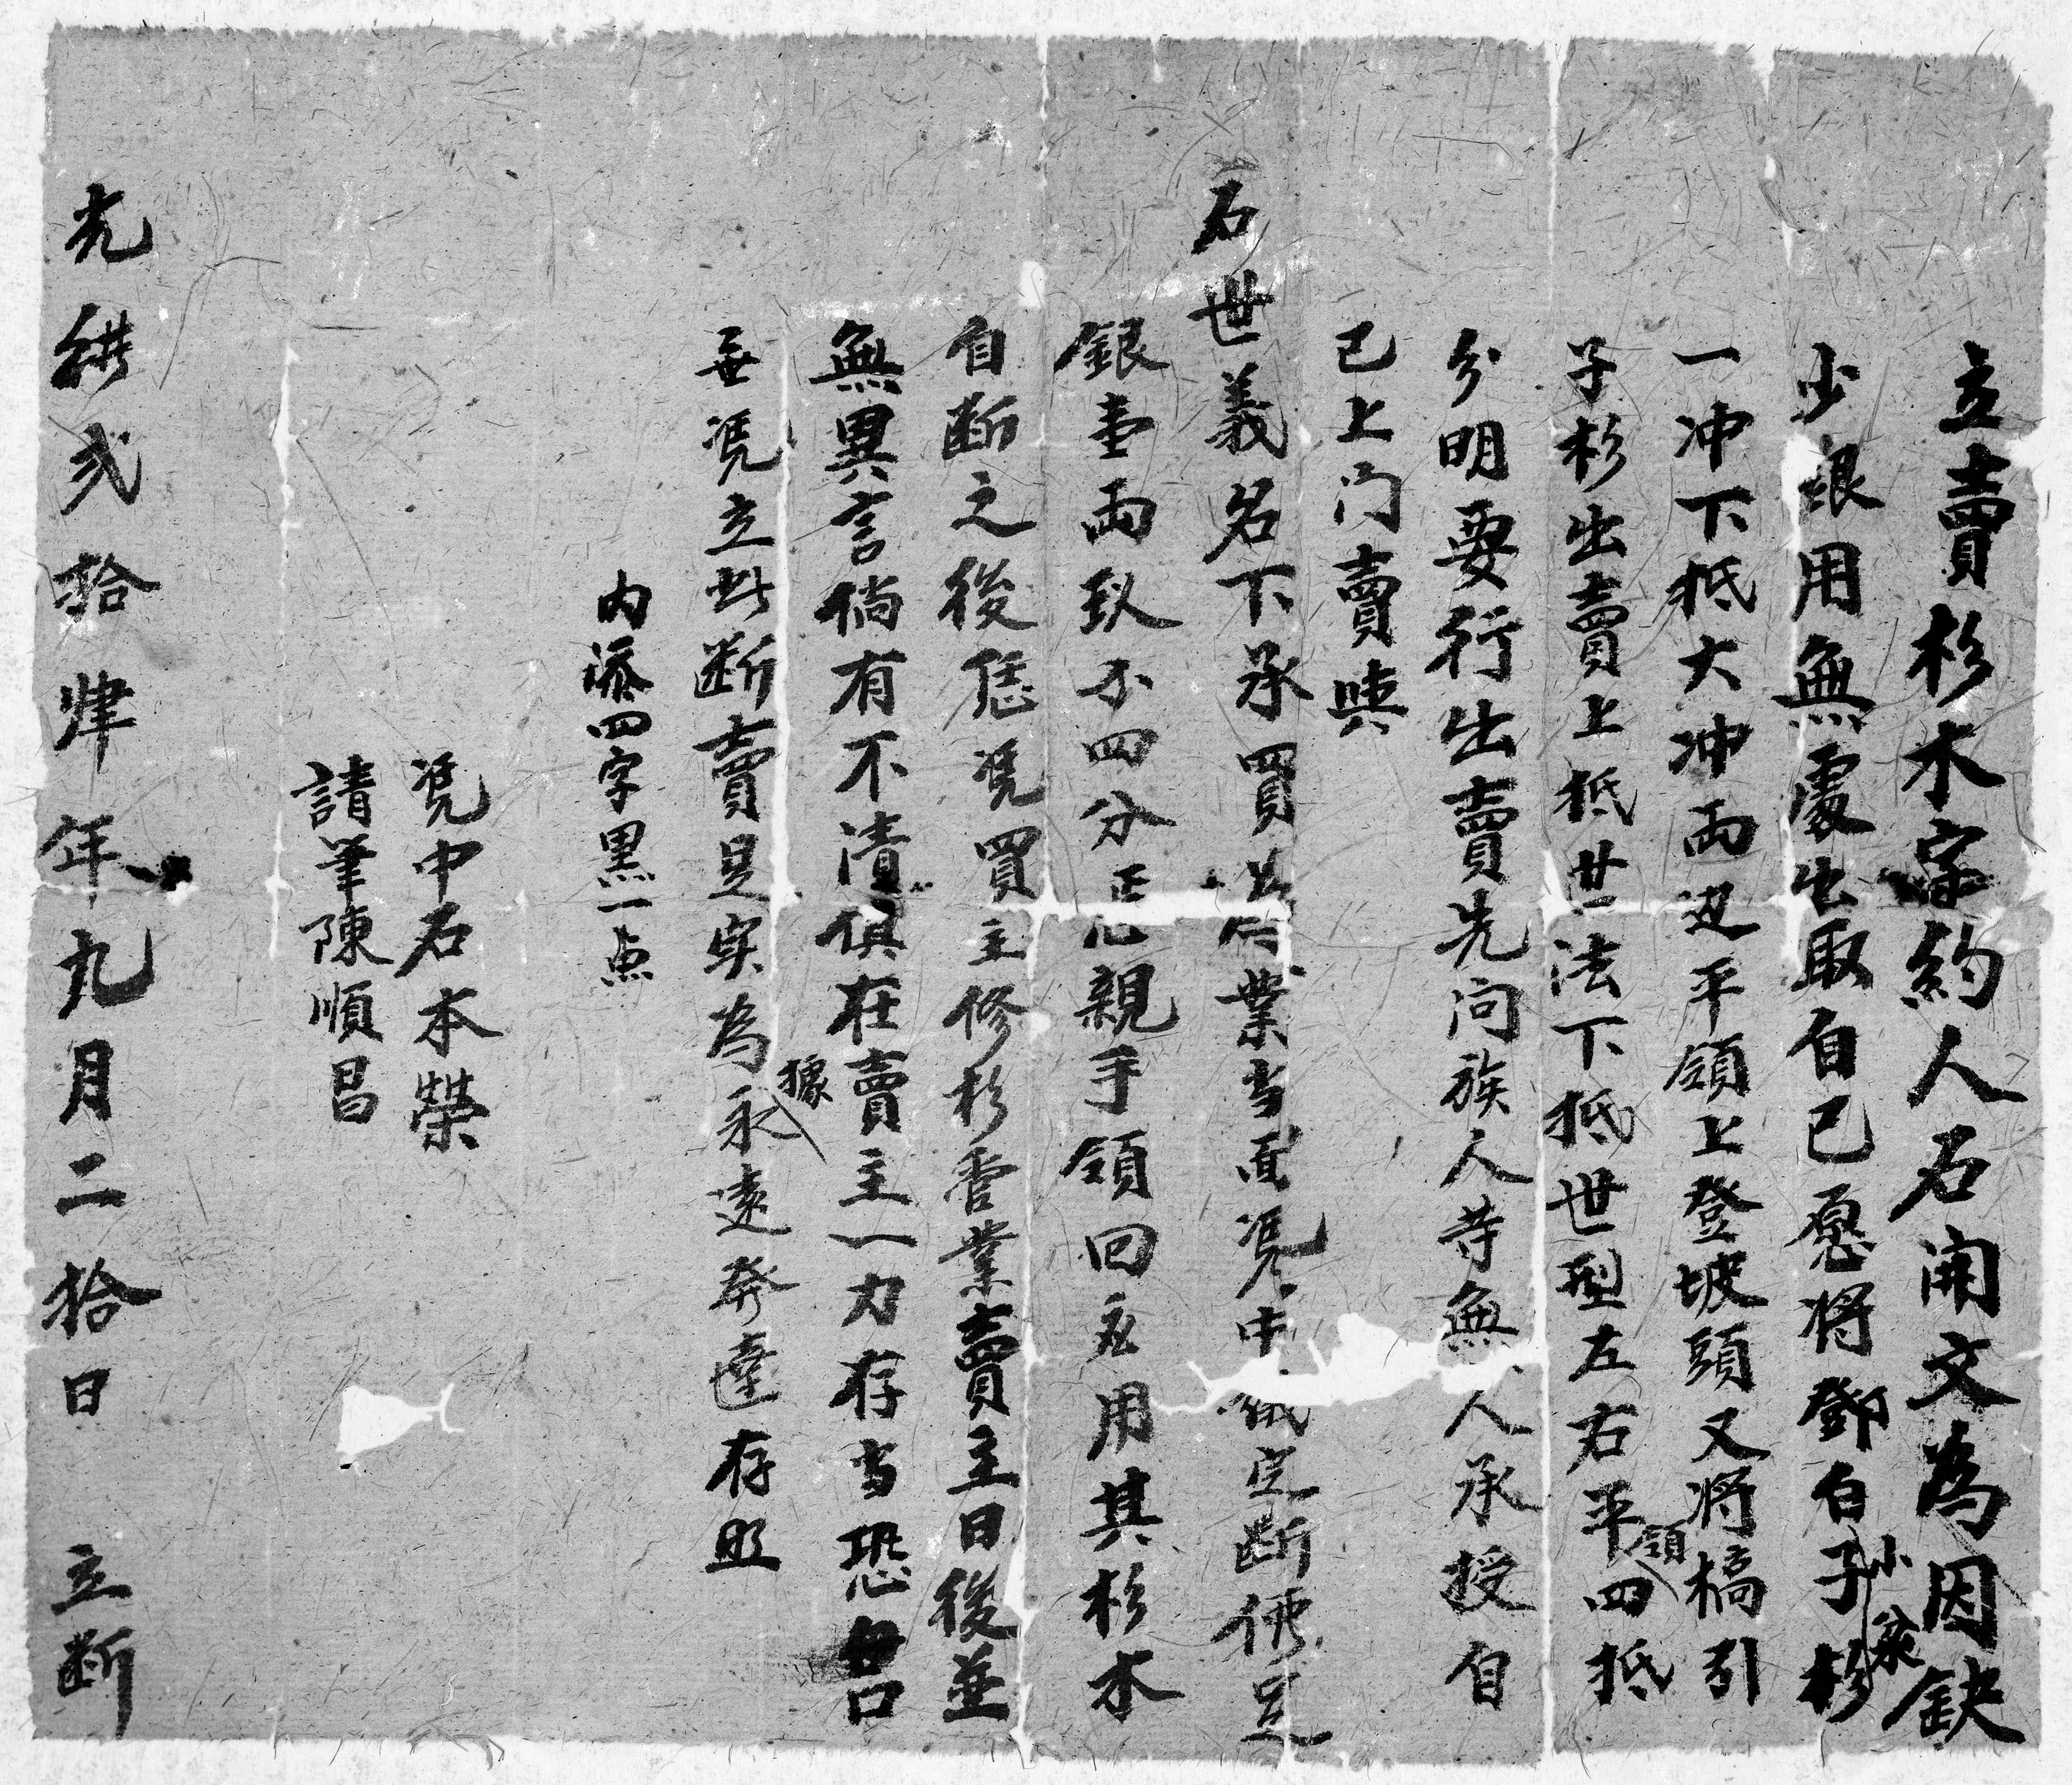 立賣杉木字約人石開文為因缺
少艮用無處出取自己愿將鄧白子小衆杉
一冲下抵大冲両边平領上登坡頭又將槁引
子杉出賣上抵世法下抵世型左右平領四抵
分明要行出賣先问族人寺無人承授自
己上门賣與
石世義名下承買為業当面凴中議定断價足
銀壹両玖仐四分正親手領回用其杉木
自断之後恁凴買主修杉管業賣主日後並
無異言倘有不清俱在賣主一力存当恐口
無凴立此断賣是实為據永遠発達存照
内添四字黑一点
凴中石本榮
請筆陳順昌
光緒弍拾肆年九月二拾日 立断